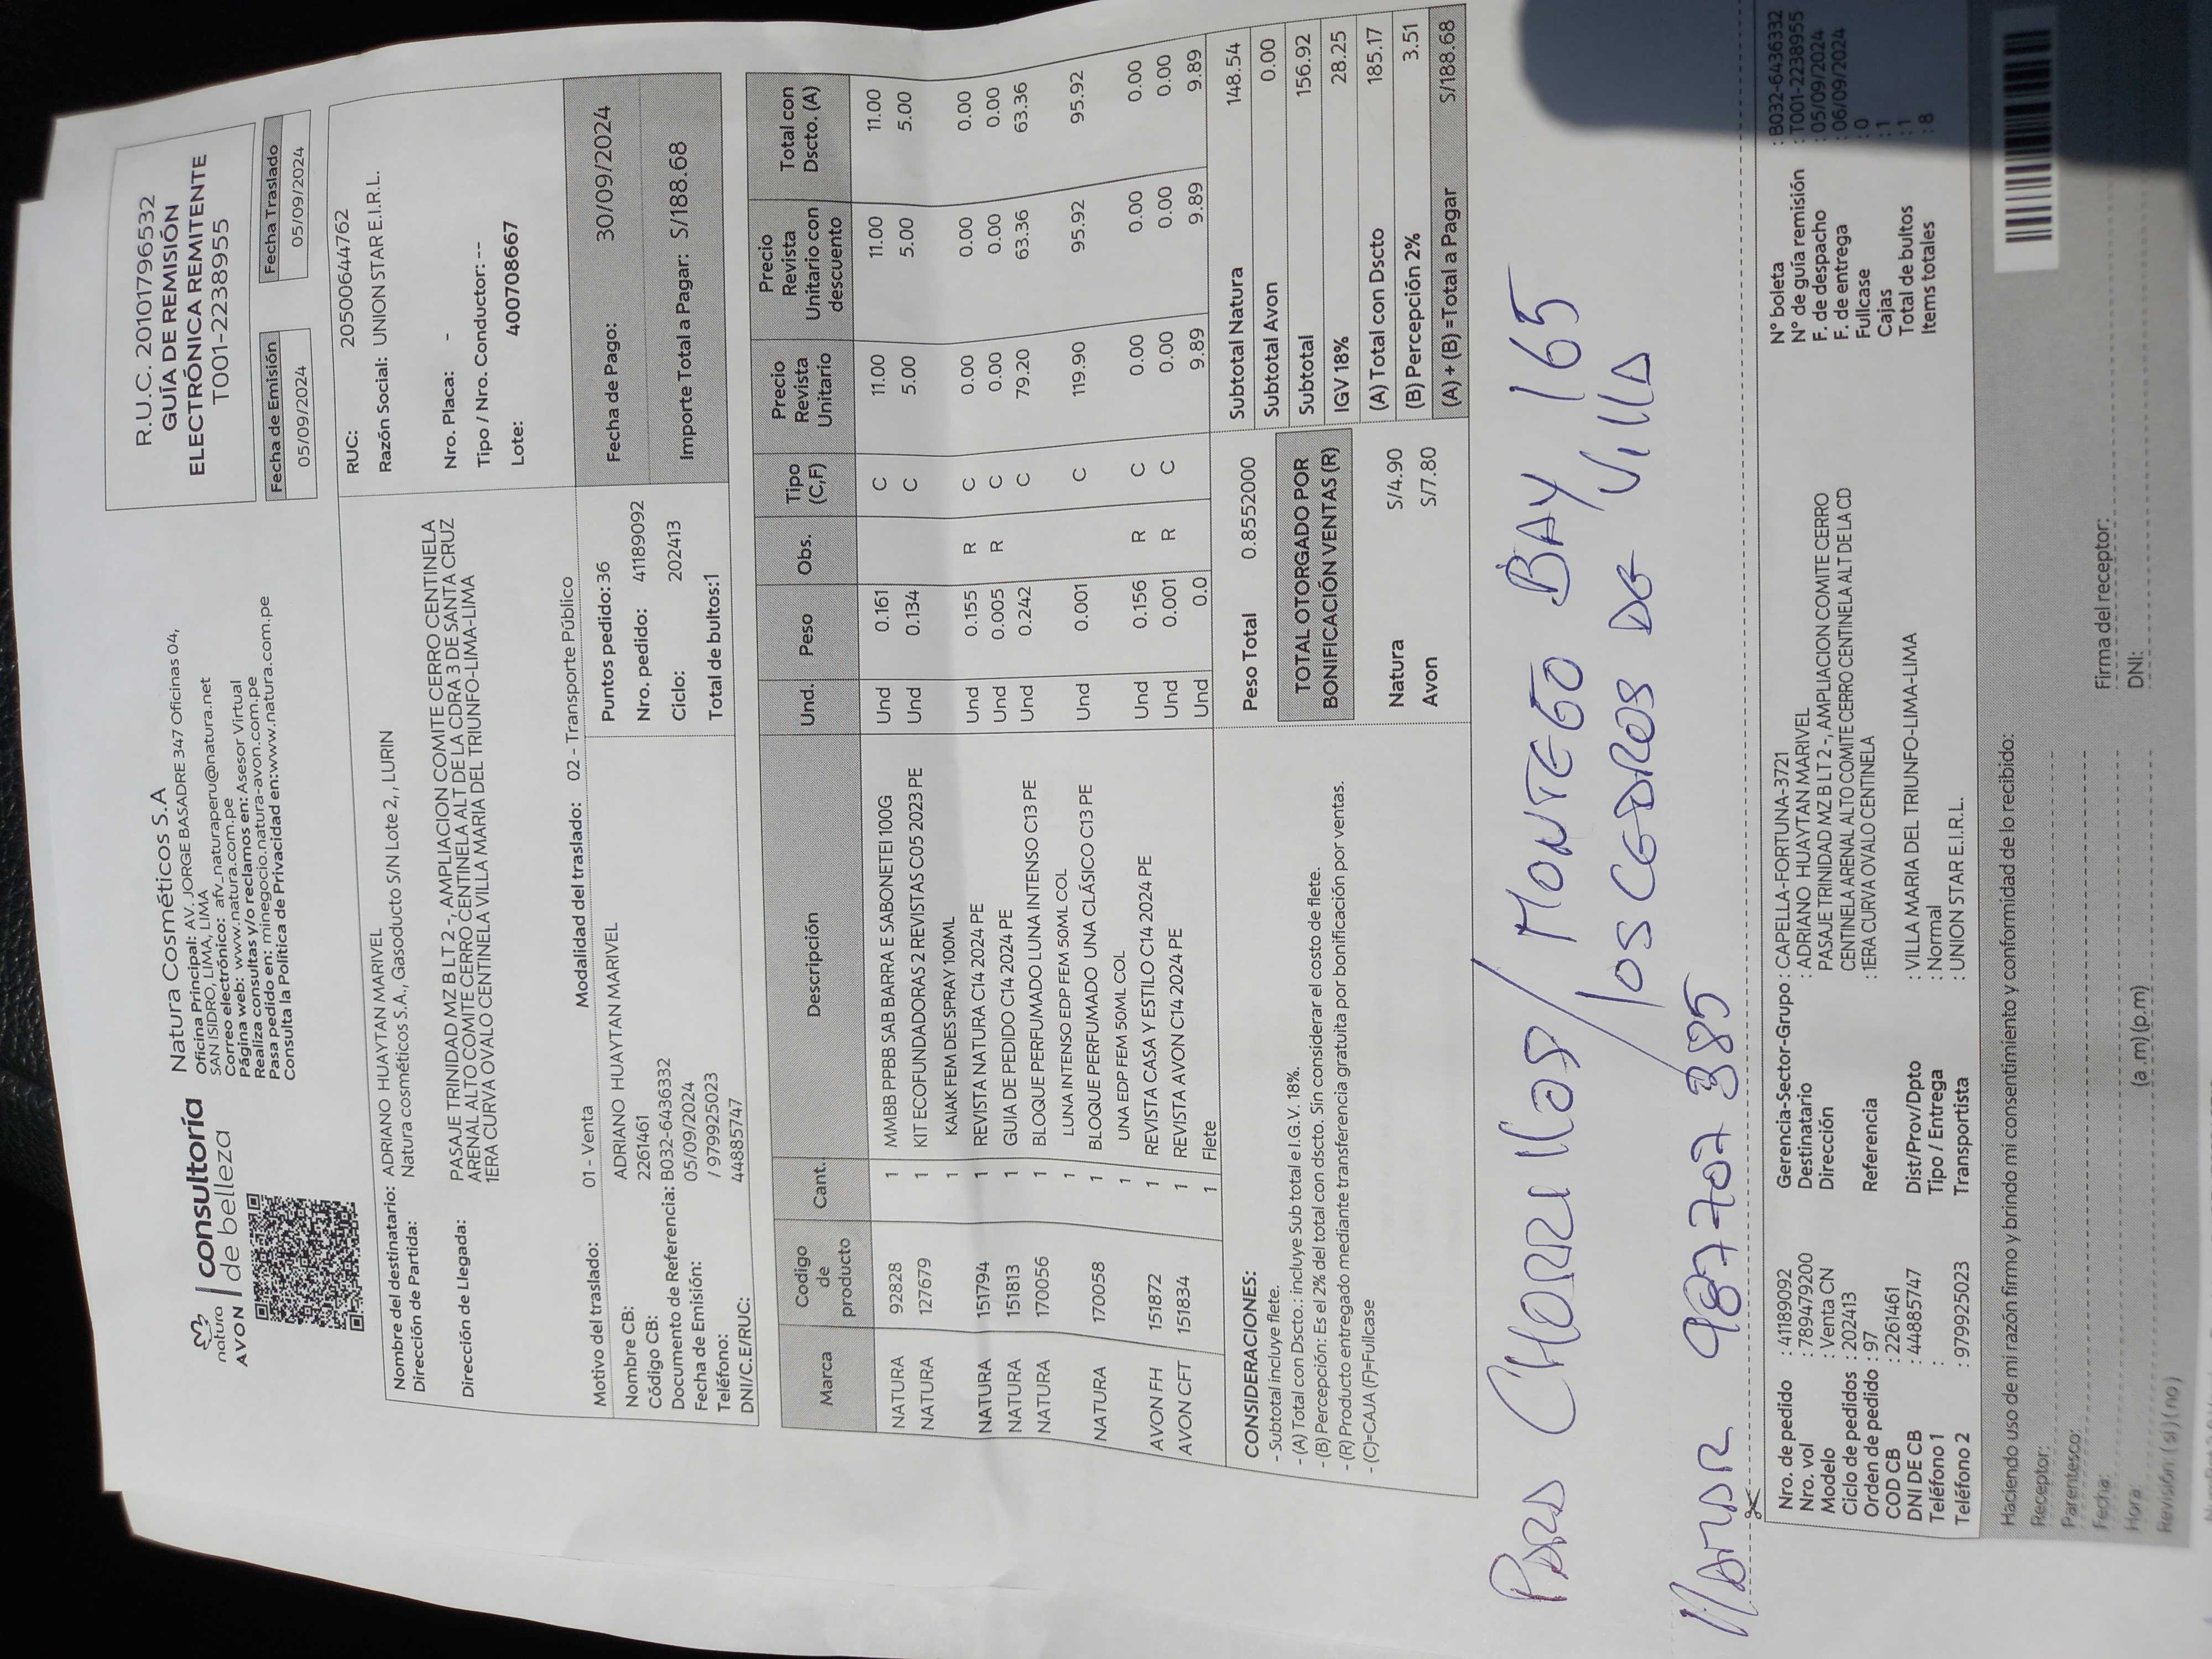 natura
AVON
consultoría
de belleza
Natura Cosméticos S.A
Oficina Principal: AV. JORGE BASADRE 347 Oficinas 04,
SAN ISIDRO, LIMA, LIMA
Correo electrónico: afv_naturaperu@natura.net
Página web: www.natura.com.pe
Realiza consultas y/o reclamos en: Asesor Virtual
Pasa pedido en: minegocio.natura-avon.com.pe
Consulta la Política de Privacidad en:www..natura.com.pe
R.U.C. 20101796532
GUÍA DE REMISIÓN
ELECTRÓNICA REMITENTE
T001-2238955
Fecha de Emisión Fecha Traslado
05/09/2024 05/09/2024
Nombre del destinatario: ADRIANO HUAYTAN MARIVEL
Dirección de Partida: Natura cosméticos S.A., Gasoducto S/N Lote 2, , LURIN
Dirección de Llegada: PASAJE TRINIDAD MZ B LT 2 -, AMPLIACION COMITE CERRO CENTINELA
ARENAL ALTO COMITE CERRO CENTINELA ALT DE LA CDRA 3 DE SANTA CRUZ
1ERA CURVA OVALO CENTINELA VILLA MARIA DEL TRIUNFO-LIMA-LIMA
RUC: 20500644762
Razón Social: UNION STAR E.I.R.L.
Nro. Placa: -
Tipo / Nro. Conductor: --
Lote: 400708667
Motivo del traslado: 01 - Venta Modalidad del traslado: 02 - Transporte Público
Nombre CB: ADRIANO HUAYTAN MARIVEL
Código CB: 2261461
Documento de Referencia: B032-6436332
Fecha de Emisión: 05/09/2024
Teléfono: / 979925023
DNI/C.E/RUC: 44885747
Puntos pedido: 36
Nro. pedido: 41189092
Ciclo: 202413
Total de bultos:1
Fecha de Pago: 30/09/2024
Importe Total a Pagar: S/188.68
Marca Codigo de producto Cant. Descripción Und. Peso Obs. Tipo (C,F) Precio Revista Unitario Precio Revista Unitario con descuento Total con Dscto. (A)
NATURA 92828 1 MMBB PPBB SAB BARRA E SABONETEI 100G Und 0.161 C 11.00 11.00 11.00
NATURA 127679 1 KIT ECOFUNDADORAS 2 REVISTAS C05 2023 PE Und 0.134 C 5.00 5.00 5.00
1 KAIAK FEM DES SPRAY 100ML
NATURA 151794 1 REVISTA NATURA C14 2024 PE Und 0.155 R C 0.00 0.00 0.00
NATURA 151813 1 GUIA DE PEDIDO C14 2024 PE Und 0.005 R C 0.00 0.00 0.00
NATURA 170056 1 BLOQUE PERFUMADO LUNA INTENSO C13 PE Und 0.242 C 79.20 63.36 63.36
1 LUNA INTENSO EDP FEM 50ML COL
NATURA 170058 1 BLOQUE PERFUMADO UNA CLÁSICO C13 PE Und 0.001 C 119.90 95.92 95.92
1 UNA EDP FEM 50ML COL
AVON FH 151872 1 REVISTA CASA Y ESTILO C14 2024 PE Und 0.156 R C 0.00 0.00 0.00
AVON CFT 151834 1 REVISTA AVON C14 2024 PE Und 0.001 R C 0.00 0.00 0.00
1 Flete Und 0.0 9.89 9.89 9.89
CONSIDERACIONES:
- Subtotal incluye flete.
- (A) Total con Dscto.: incluye Sub total e I.G.V. 18%.
- (B) Percepción: Es el 2% del total con dscto. Sin considerar el costo de flete.
- (R) Producto entregado mediante transferencia gratuita por bonificación por ventas.
- (C)=CAJA (F)=Fullcase
Peso Total 0.8552000
TOTAL OTORGADO POR
BONIFICACIÓN VENTAS (R)
Natura S/4.90
Avon S/7.80
Subtotal Natura 148.54
Subtotal Avon 0.00
Subtotal 156.92
IGV 18% 28.25
(A) Total con Dscto 185.17
(B) Percepción 2% 3.51
(A) + (B) =Total a Pagar S/188.68
PARA CHORRILLOS / MONTEGO BAY 165
LOS CEDROS DE VILLA
987707385
Nro. de pedido : 41189092
Nro. vol : 789479200
Modelo : Venta CN
Ciclo de pedidos : 202413
Orden de pedido : 97
COD CB : 2261461
DNI DE CB : 44885747
Teléfono 1 :
Teléfono 2 : 979925023
Gerencia-Sector-Grupo : CAPELLA-FORTUNA-3721
Destinatario : ADRIANO HUAYTAN MARIVEL
Dirección PASAJE TRINIDAD MZ B LT 2 -, AMPLIACION COMITE CERRO
CENTINELA ARENAL ALTO COMITE CERRO CENTINELA ALT DE LA CD
Referencia : 1ERA CURVA OVALO CENTINELA
Dist/Prov/Dpto : VILLA MARIA DEL TRIUNFO-LIMA-LIMA
Tipo / Entrega : Normal
Transportista : UNION STAR E.I.R.L.
N° boleta : B032-6436332
N° de guía remisión : T001-2238955
F. de despacho : 05/09/2024
F. de entrega : 06/09/2024
Fullcase : 0
Cajas : 1
Total de bultos : 1
Items totales : 8
Haciendo uso de mi razón firmo y brindo mi consentimiento y conformidad de lo recibido:
Receptor:
Parentesco:
Fecha:
Hora: (a .m)(p.m)
Revisión (si)(no)
Firma del receptor:
DNI: